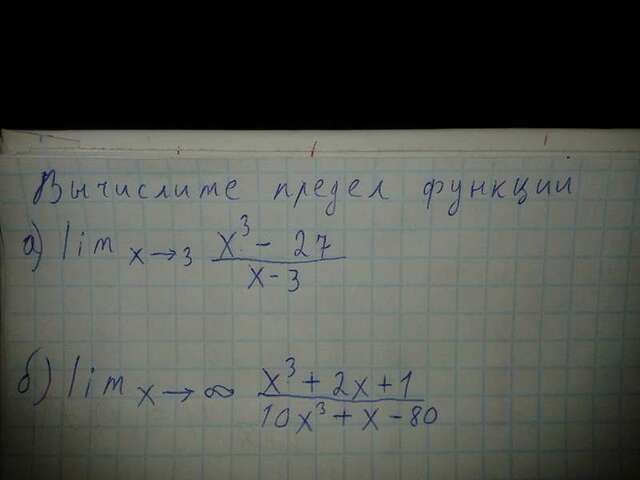 Вычислите предел функции
а) lim x→3 x³ - 27 / x - 3
б) lim x→∞ x³ + 2x + 1 / 10x³ + x - 80